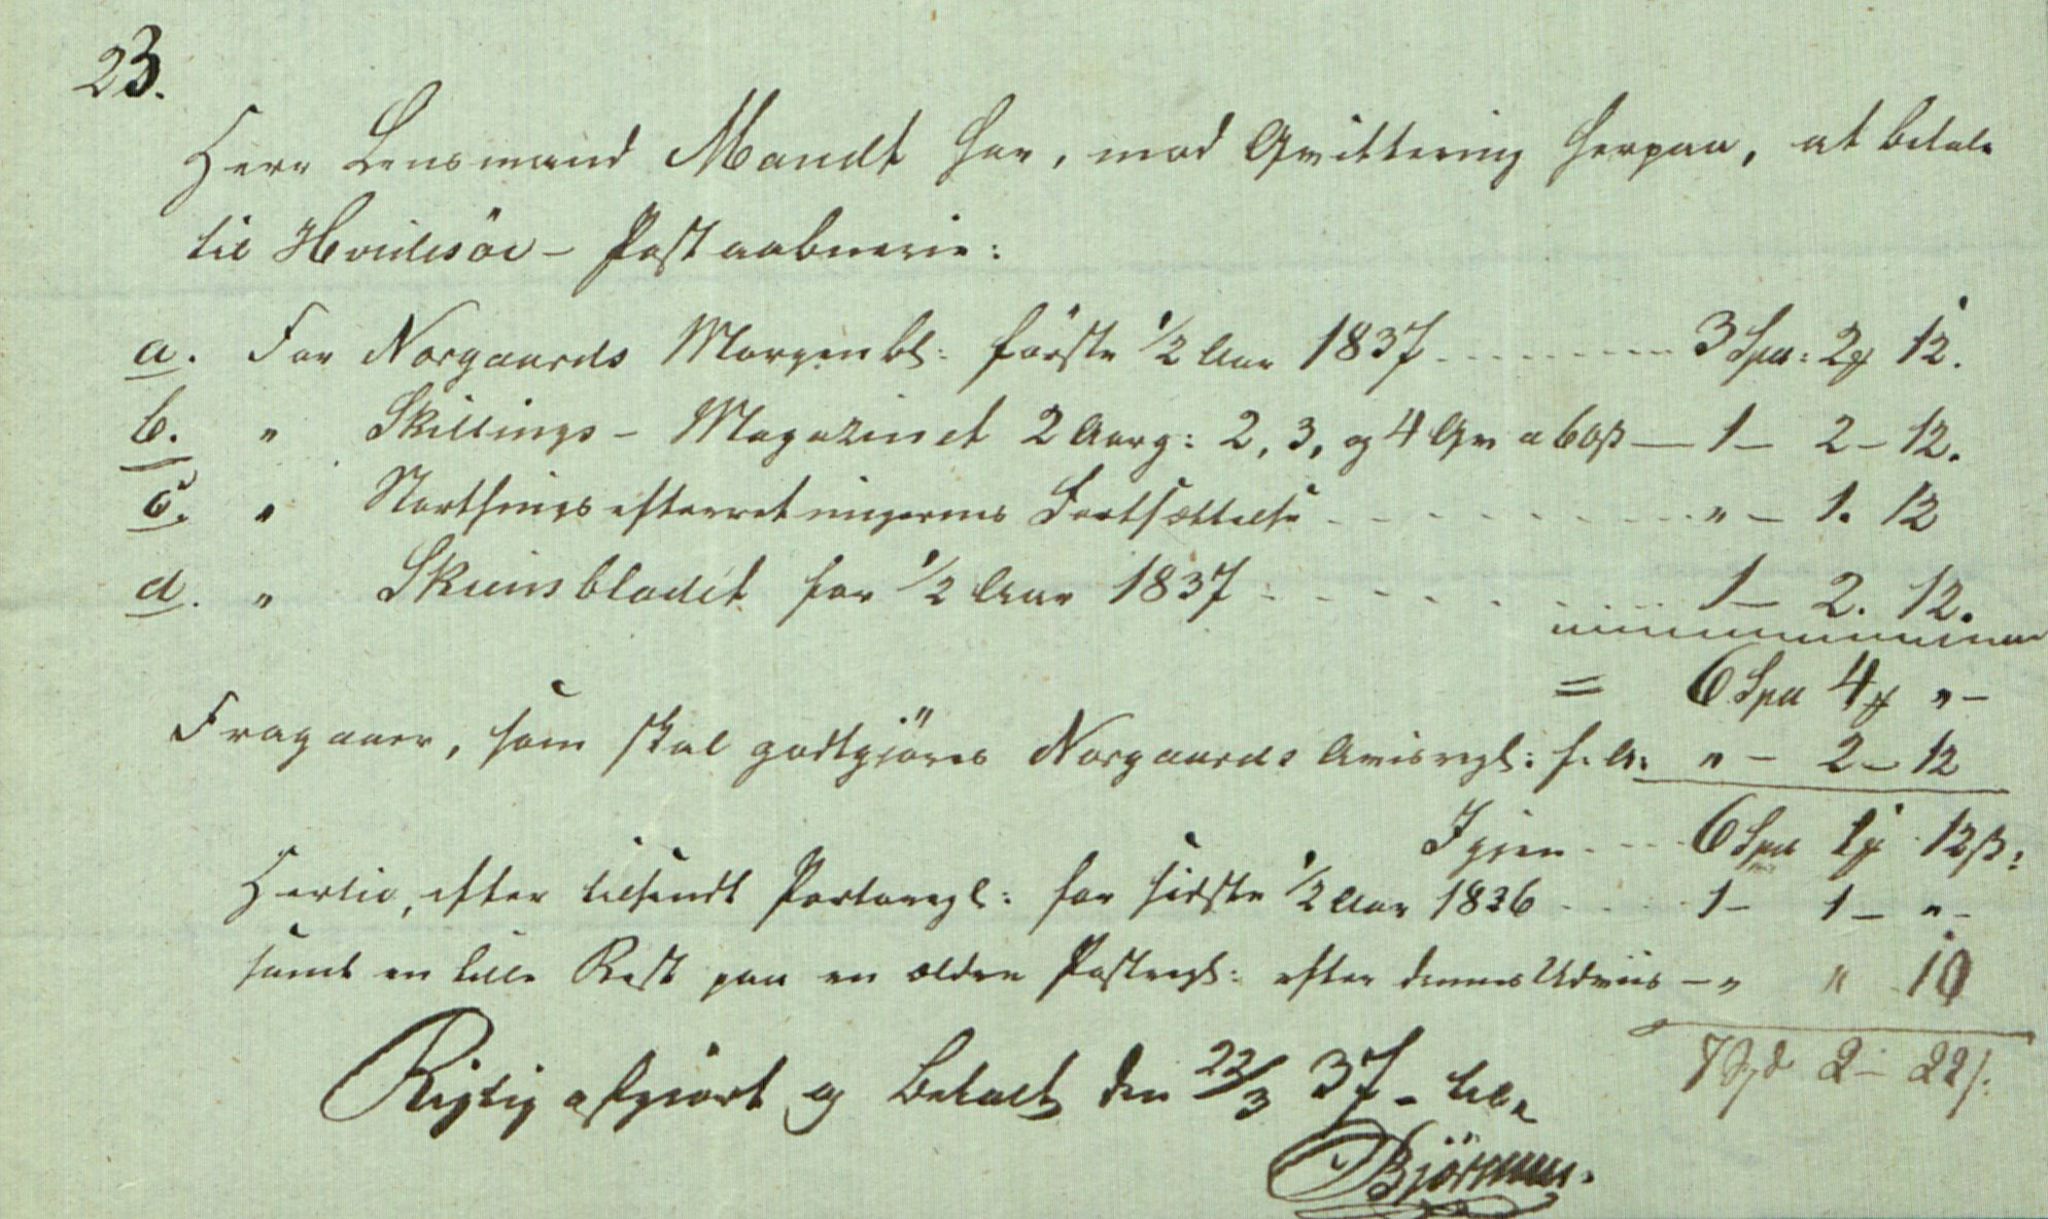 23.
Herr Lensmand Mandt har, mod Qvittering herpaa, at betale
til Hvidesöe - Postaabnerie:
a. For Norgaards Morgenbl: förste 1/2 Aar 1837 - - - - 3 Spd: 2 ȷ 12.
b. " Skillings - Magazinet 2 Aarg: 2, 3, og 4 Qv a 60ß — 1 — 2 — 12.
c. " Storthingsefterretningernes Fortsættelse - - - - " — 1. 12
d. " Skiensbladet for 1/2 Aar 1837 - - - - 1 — 2. 12.
= 6 Spd 4 ȷ " —
Fragaaer, som skal godtgjöres Norgaards Avisregl: f. A: " — 2 — 12
Igjen - - - 6 Spd 1 ȷ 12ß:
Hertil, efter tilsendt Portoregl: for sidste 1/2 Aar 1836 - - - 1 — 1 — " —
samt en lille Rest paa en ældre Postregl: efter dennes Udviis — " " 10
7 Spd 2 — 22ß.
Rigtig afgjort og Betalt den 22/3 37 -